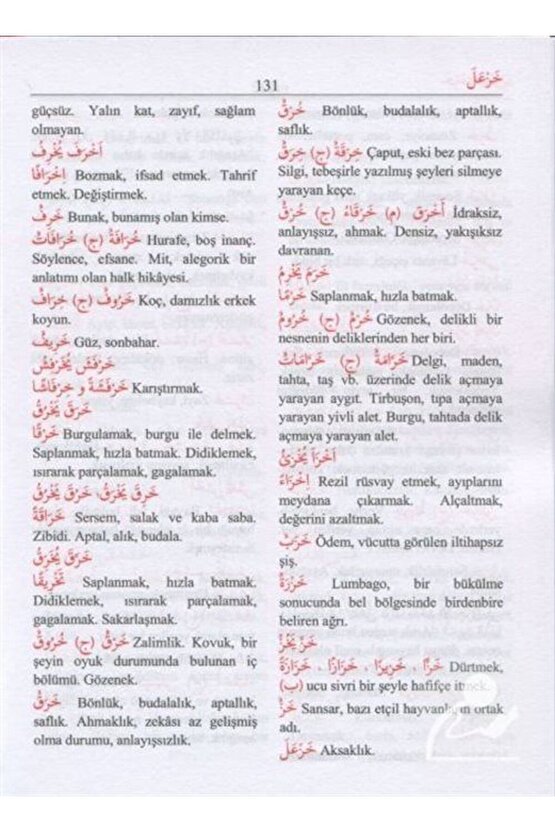 131
خَزْعَلَ
güçsüz. Yalın kat, zayıf, sağlam
olmayan.
أَخْرَفَ يُخْرِفُ
إِخْرَافًا Bozmak, ifsad etmek. Tahrif
etmek. Değiştirmek.
خَرِفٌ Bunak, bunamış olan kimse.
خُرَافَةٌ (ج) خُرَافَاتٌ Hurafe, boş inanç.
Söylence, efsane. Mit, alegorik bir
anlatımı olan halk hikâyesi.
خَرُوفٌ (ج) خِرَافٌ Koç, damızlık erkek
koyun.
خَرِيفٌ Güz, sonbahar.
خَرْفَشَ يُخَرْفِشُ
خَرْفَشَةً و خِرْفَاشًا Karıştırmak.
خَرَقَ يَخْرُقُ
خَرْقًا Burgulamak, burgu ile delmek.
Saplanmak, hızla batmak. Didiklemek,
ısırarak parçalamak, gagalamak.
خَرِقَ يَخْرَقُ ، خَرُقَ يَخْرُقُ
خَرَاقَةً Sersem, salak ve kaba saba.
Zibidi. Aptal, alık, budala.
خَرَّقَ يُخَرِّقُ
تَخْرِيقًا Saplanmak, hızla batmak.
Didiklemek, ısırarak parçalamak,
gagalamak. Sakarlaşmak.
خَرْقٌ (ج) خُرُوقٌ Zalimlik. Kovuk, bir
şeyin oyuk durumunda bulunan iç
bölümü. Gözenek.
خَرَقٌ Bönlük, budalalık, aptallık,
saflık. Ahmaklık, zekâsı az gelişmiş
olma durumu, anlayışsızlık.
خُرْقٌ Bönlük, budalalık, aptallık,
saflık.
خِرْقَةٌ (ج) خِرَقٌ Çaput, eski bez parçası.
Silgi, tebeşirle yazılmış şeyleri silmeye
yarayan keçe.
أَخْرَقُ (م) خَرْقَاءُ (ج) خُرْقٌ İdraksiz,
anlayışsız, ahmak. Densiz, yakışıksız
davranan.
خَرَمَ يَخْرِمُ
خَرْمًا Saplanmak, hızla batmak.
خَرْمٌ (ج) خُرُومٌ Gözenek, delikli bir
nesnenin deliklerinden her biri.
خَرَّامَةٌ (ج) خَرَّامَاتٌ Delgi, maden,
tahta, taş vb. üzerinde delik açmaya
yarayan aygıt. Tirbuşon, tıpa açmaya
yarayan yivli alet. Burgu, tahtada delik
açmaya yarayan alet.
إِخْزَاءً Rezil rüsvay etmek, ayıplarını
meydana çıkarmak. Alçaltmak,
değerini azaltmak.
خَزَبٌ Ödem, vücutta görülen iltihapsız
şiş.
خَزْرَةٌ Lumbago, bir bükülme
sonucunda bel bölgesinde birdenbire
beliren ağrı.
Dürtmek,
(ب) ucu sivri bir şeyle hafifçe itmek.
خَزٌّ Sansar, bazı etçil hayvanların ortak
adı.
خَزْعَلَ Aksaklık.